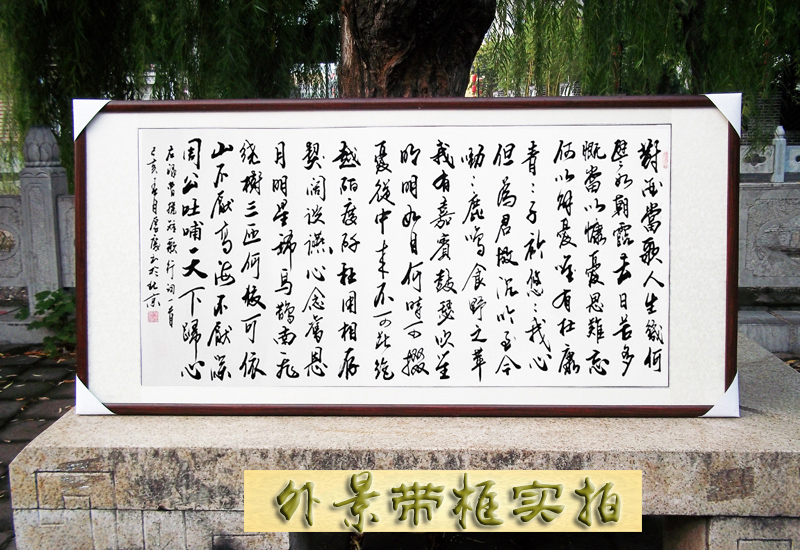 對酒當歌人生幾何
譬如朝露去日苦多
慨當以慷憂思難忘
何以解憂唯有杜康
青〻子衿悠〻我心
但為君故沉吟至今
呦〻鹿鳴食野之苹
我有嘉賓鼓瑟吹笙
明明如月何時可掇
憂從中來不可斷絕
越陌度阡枉用相存
契闊談讌心念舊恩
月明星稀烏鵲南飛
繞樹三匝何枝可依
山不厭高海不厭深
周公吐哺天下歸心
右錄曹操短歌行詞一首
己亥春月書於北京
外景带框实拍